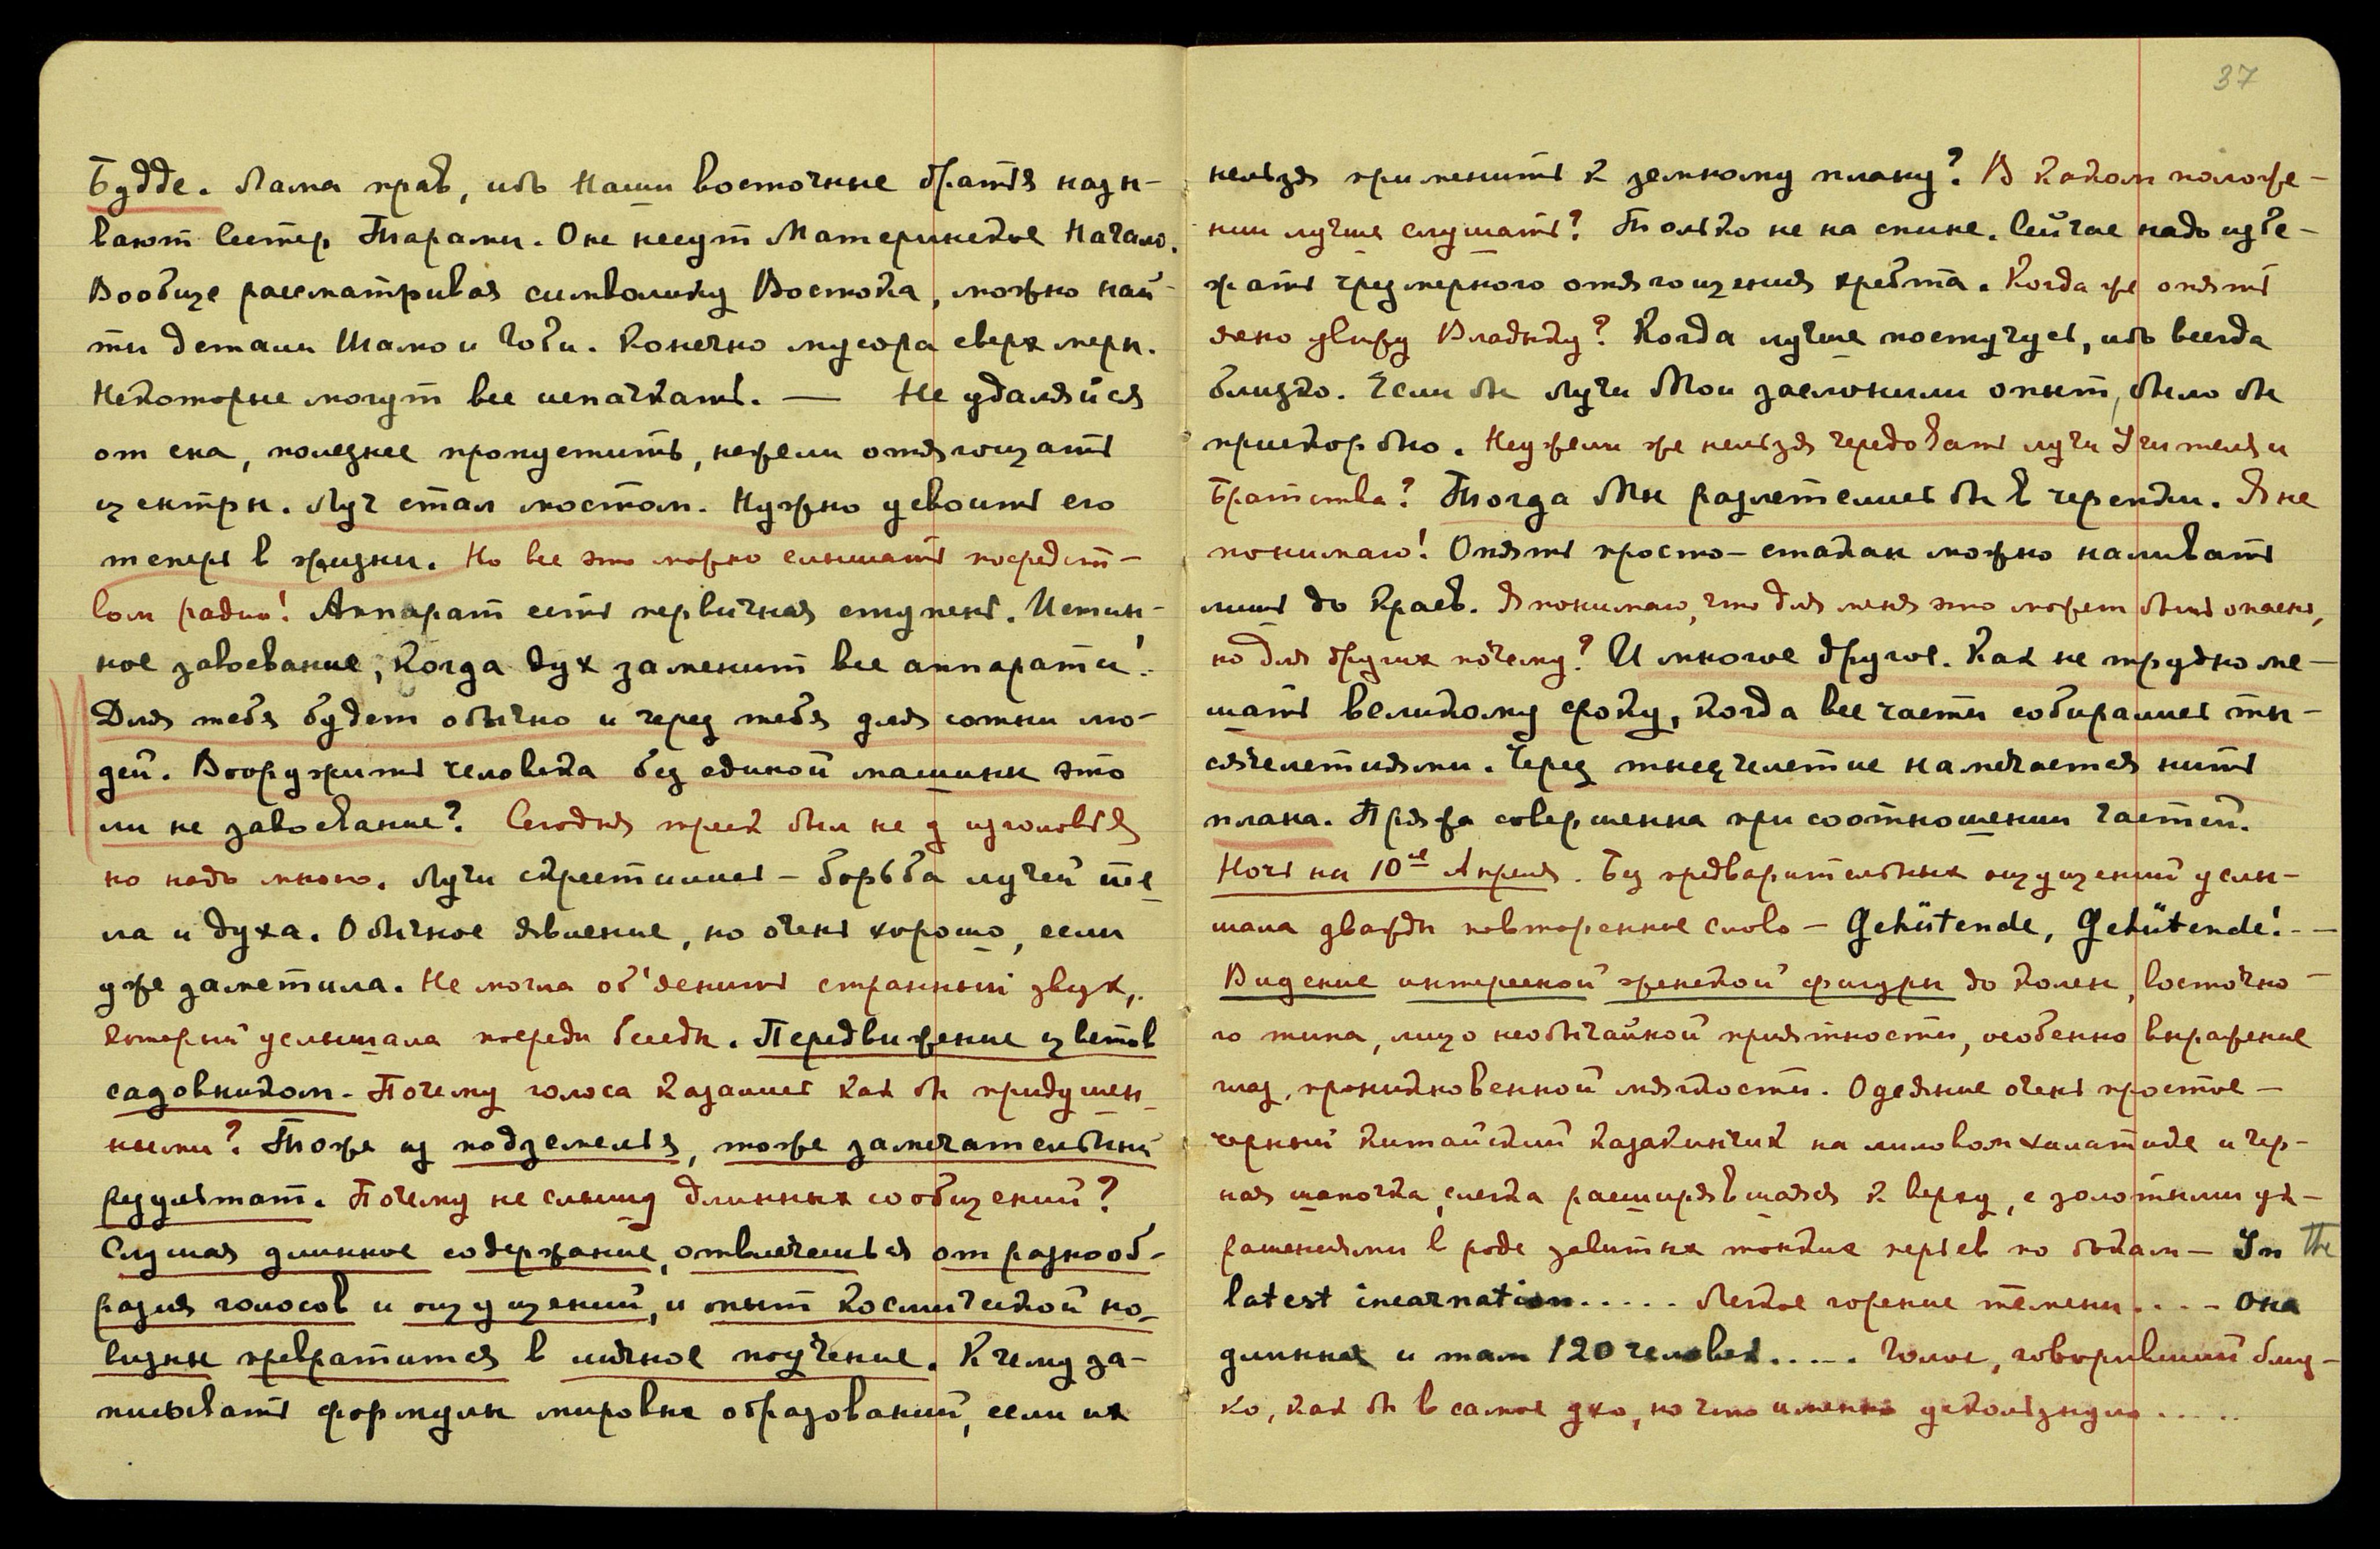 Будде. Лама прав, ибо Наши восточные братья назы-
вают Сестер Тарами. Оне несут Материнское Начало.
Вообще рассматривая символику Востока, можно най-
ти детали Шамо и Гоби. Конечно мусора сверх меры.
Некоторые могут все испачкать. — Не удаляйся
от сна, полезнее пропустить, нежели отягощать
центры. Луч стал мостом. Нужно усвоить его
теперь в жизни. Но все это можно слышать посредст-
вом радио! Аппарат есть первичная ступень. Истин-
ное завоевание, когда дух заменит все аппараты!
Для тебя будет обычно и через тебя для сотни лю-
дей. Вооружить человека без единой машины это
ли не завоевание? Сегодня треск был не у изголовья
но надо много. Лучи скрестились – борьба лучей те-
ла и духа. Обычное явление, но очень хорошо, если
уже заметила. Не могла об'яснить странный звук,
который услышала посреди беседы. Передвижение цветов
садовником. Почему голоса казались как бы придушен-
ными? Тоже из подземелья, тоже замечательный
результат. Почему не слышу длинных сообщений?
Слушая длинное содержание, отвлечешься от разнооб-
разия голосов и ощущений, и опыт космической но-
визны превратится в личное поучение. К чему за-
писывать формулы мировых образований, если их
37
нельзя применить к земному плану? В каком положе-
нии лучше слушать? Только не на спине. Сейчас надо избе-
жать чрезмерного отягощения хребта. Когда же опять
ясно увижу Владыку? Когда лучше постучусь, ибо всегда
близко. Если бы лучи Мои заслонили опыт, было бы
прискорбно. Неужели же нельзя чередовать лучи Учителя и
Братства? Тогда Мы разлетелись бы в черепки. Я не
понимаю! Опять просто – стакан можно наливать
лишь до краев. Я понимаю, что для меня это может быть опасно,
но для других почему? И многое другое. Как не трудно ме-
шать великому сроку, когда все части собирались ты-
сячелетиями. Через тысячелетие намечается нить
плана. Пряжа совершенна при соотношении частей.
Ночь на 10ое Апреля. Без предварительных ощущений услы-
шала дважды повторенное слово – Gehütende, Gehütende! - –
Видение интересной женской фигуры до колен, восточно-
го типа, лицо необычайной приятности, особенно выражение
глаз, проникновенной мягкости. Одеяние очень простое –
черный китайский казакинчик на лиловом халатике и чер-
ная шапочка, слегка расширявшаяся к верху, с золотыми ук-
рашениями в роде завитых тонких перьев по бокам – In the
latest incarnation..... Легкое горение темени.... Она
длинная и там 120 человек..... Голос, говоривший близ-
ко, как бы в самое ухо, но что именно ускользнуло.....